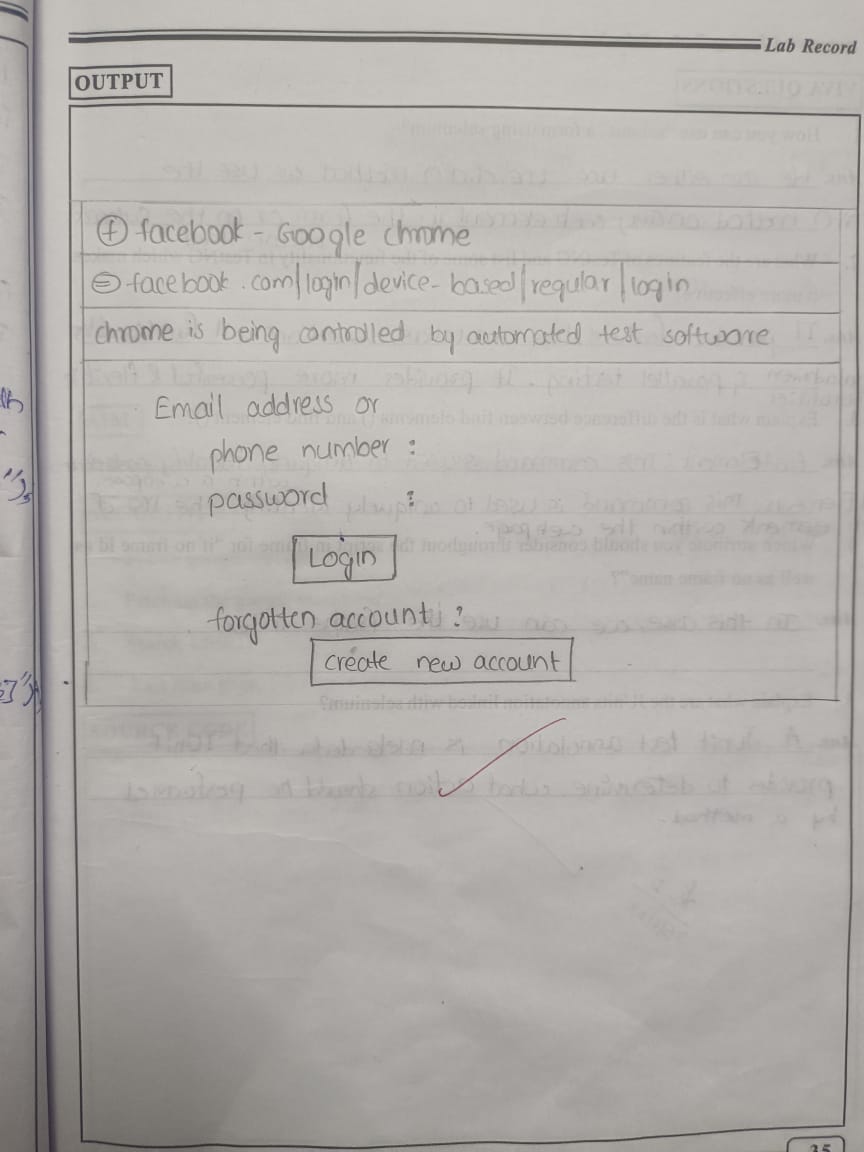 Lab Record
OUTPUT
facebook - Google chrome
facebook.com/login/device-based/regular/login
chrome is being controlled by automated test software
Email address or
phone number :
password :
Login
forgotten account ?
create new account
35